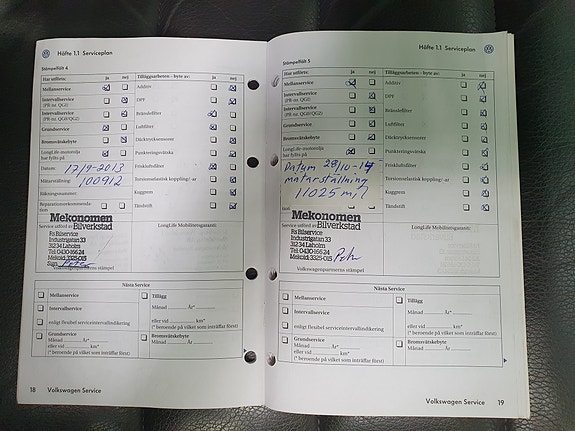 Häfte 1.1 Serviceplan
Stämpelfält 4
Har utförts: ja nej
Mellanservice
Intervallservice
(PR-nr. QG1)
Intervallservice
(PR-nr. QG2)
Grundservice
Bromsvätskebyte
LongLife-motorolja
har fyllts på
Datum: 17/9-2013
Mätarställning: 100912
Räkningsnummer:
Reparationsrekommenda-
tion
Tilläggsarbeten - byte av: ja nej
Additiv
DPF
Bränslefilter
Luftfilter
Däcktryckssensorer
Punkteringsvätska
Friskluftsfilter
Torsionselastisk koppling/-ar
Kuggrem
Tändstift
Mekonomen
Service utförd av Bilverkstad
Rs Bilservice
Industrigatan 33
312 34 Laholm
Tel: 0430-166 24
Mekoid: 3325-015
Sign
Volkswagenpartnerns stämpel
LongLife Mobilitetsgaranti:
Nästa Service
Mellanservice
Intervallservice
enligt flexibel serviceintervallindikering
Grundservice
Månad År
eller vid km*
(* beroende på vilket som inträffar först)
Tillägg
Månad År
eller vid km*
(* beroende på vilket som inträffar först)
Bromsvätskebyte
Månad År
18 Volkswagen Service
Häfte 1.1 Serviceplan
Stämpelfält 5
Har utförts: ja nej
Mellanservice
Intervallservice
(PR-nr. QG1)
Intervallservice
(PR-nr. QG2)
Grundservice
Bromsvätskebyte
LongLife-motorolja
har fyllts på
Datum 28/10-14
mätarställning
11025 mil
Tilläggsarbeten - byte av: ja nej
Additiv
DPF
Bränslefilter
Luftfilter
Däcktryckssensorer
Punkteringsvätska
Friskluftsfilter
Torsionselastisk koppling/-ar
Kuggrem
Tändstift
Mekonomen
Service utförd av Bilverkstad
Rs Bilservice
Industrigatan 33
312 34 Laholm
Tel: 0430-166 24
Mekoid: 3325-015
Volkswagenpartnerns stämpel
LongLife Mobilitetsgaranti:
Nästa Service
Mellanservice
Intervallservice
enligt flexibel serviceintervallindikering
Grundservice
Månad År
eller vid km*
(* beroende på vilket som inträffar först)
Tillägg
Månad År
eller vid km*
(* beroende på vilket som inträffar först)
Bromsvätskebyte
Månad År
Volkswagen Service 19